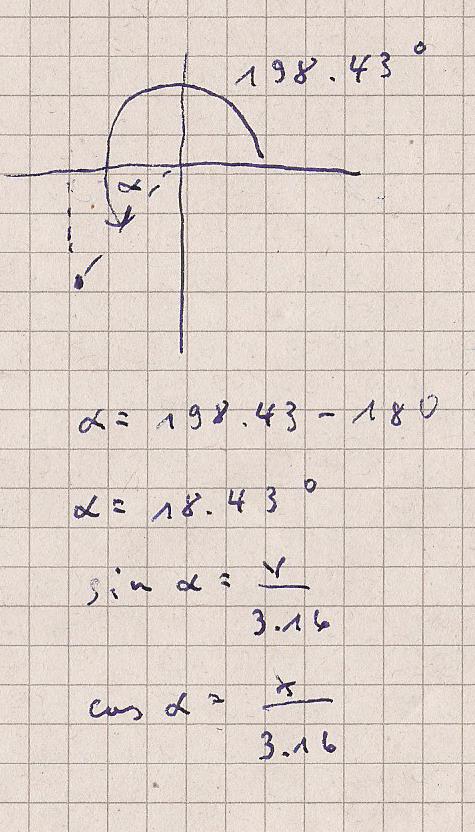 198.43°
α
α = 198.43 - 180
α = 18.43°
sin α = y / 3.16
cos α = x / 3.16